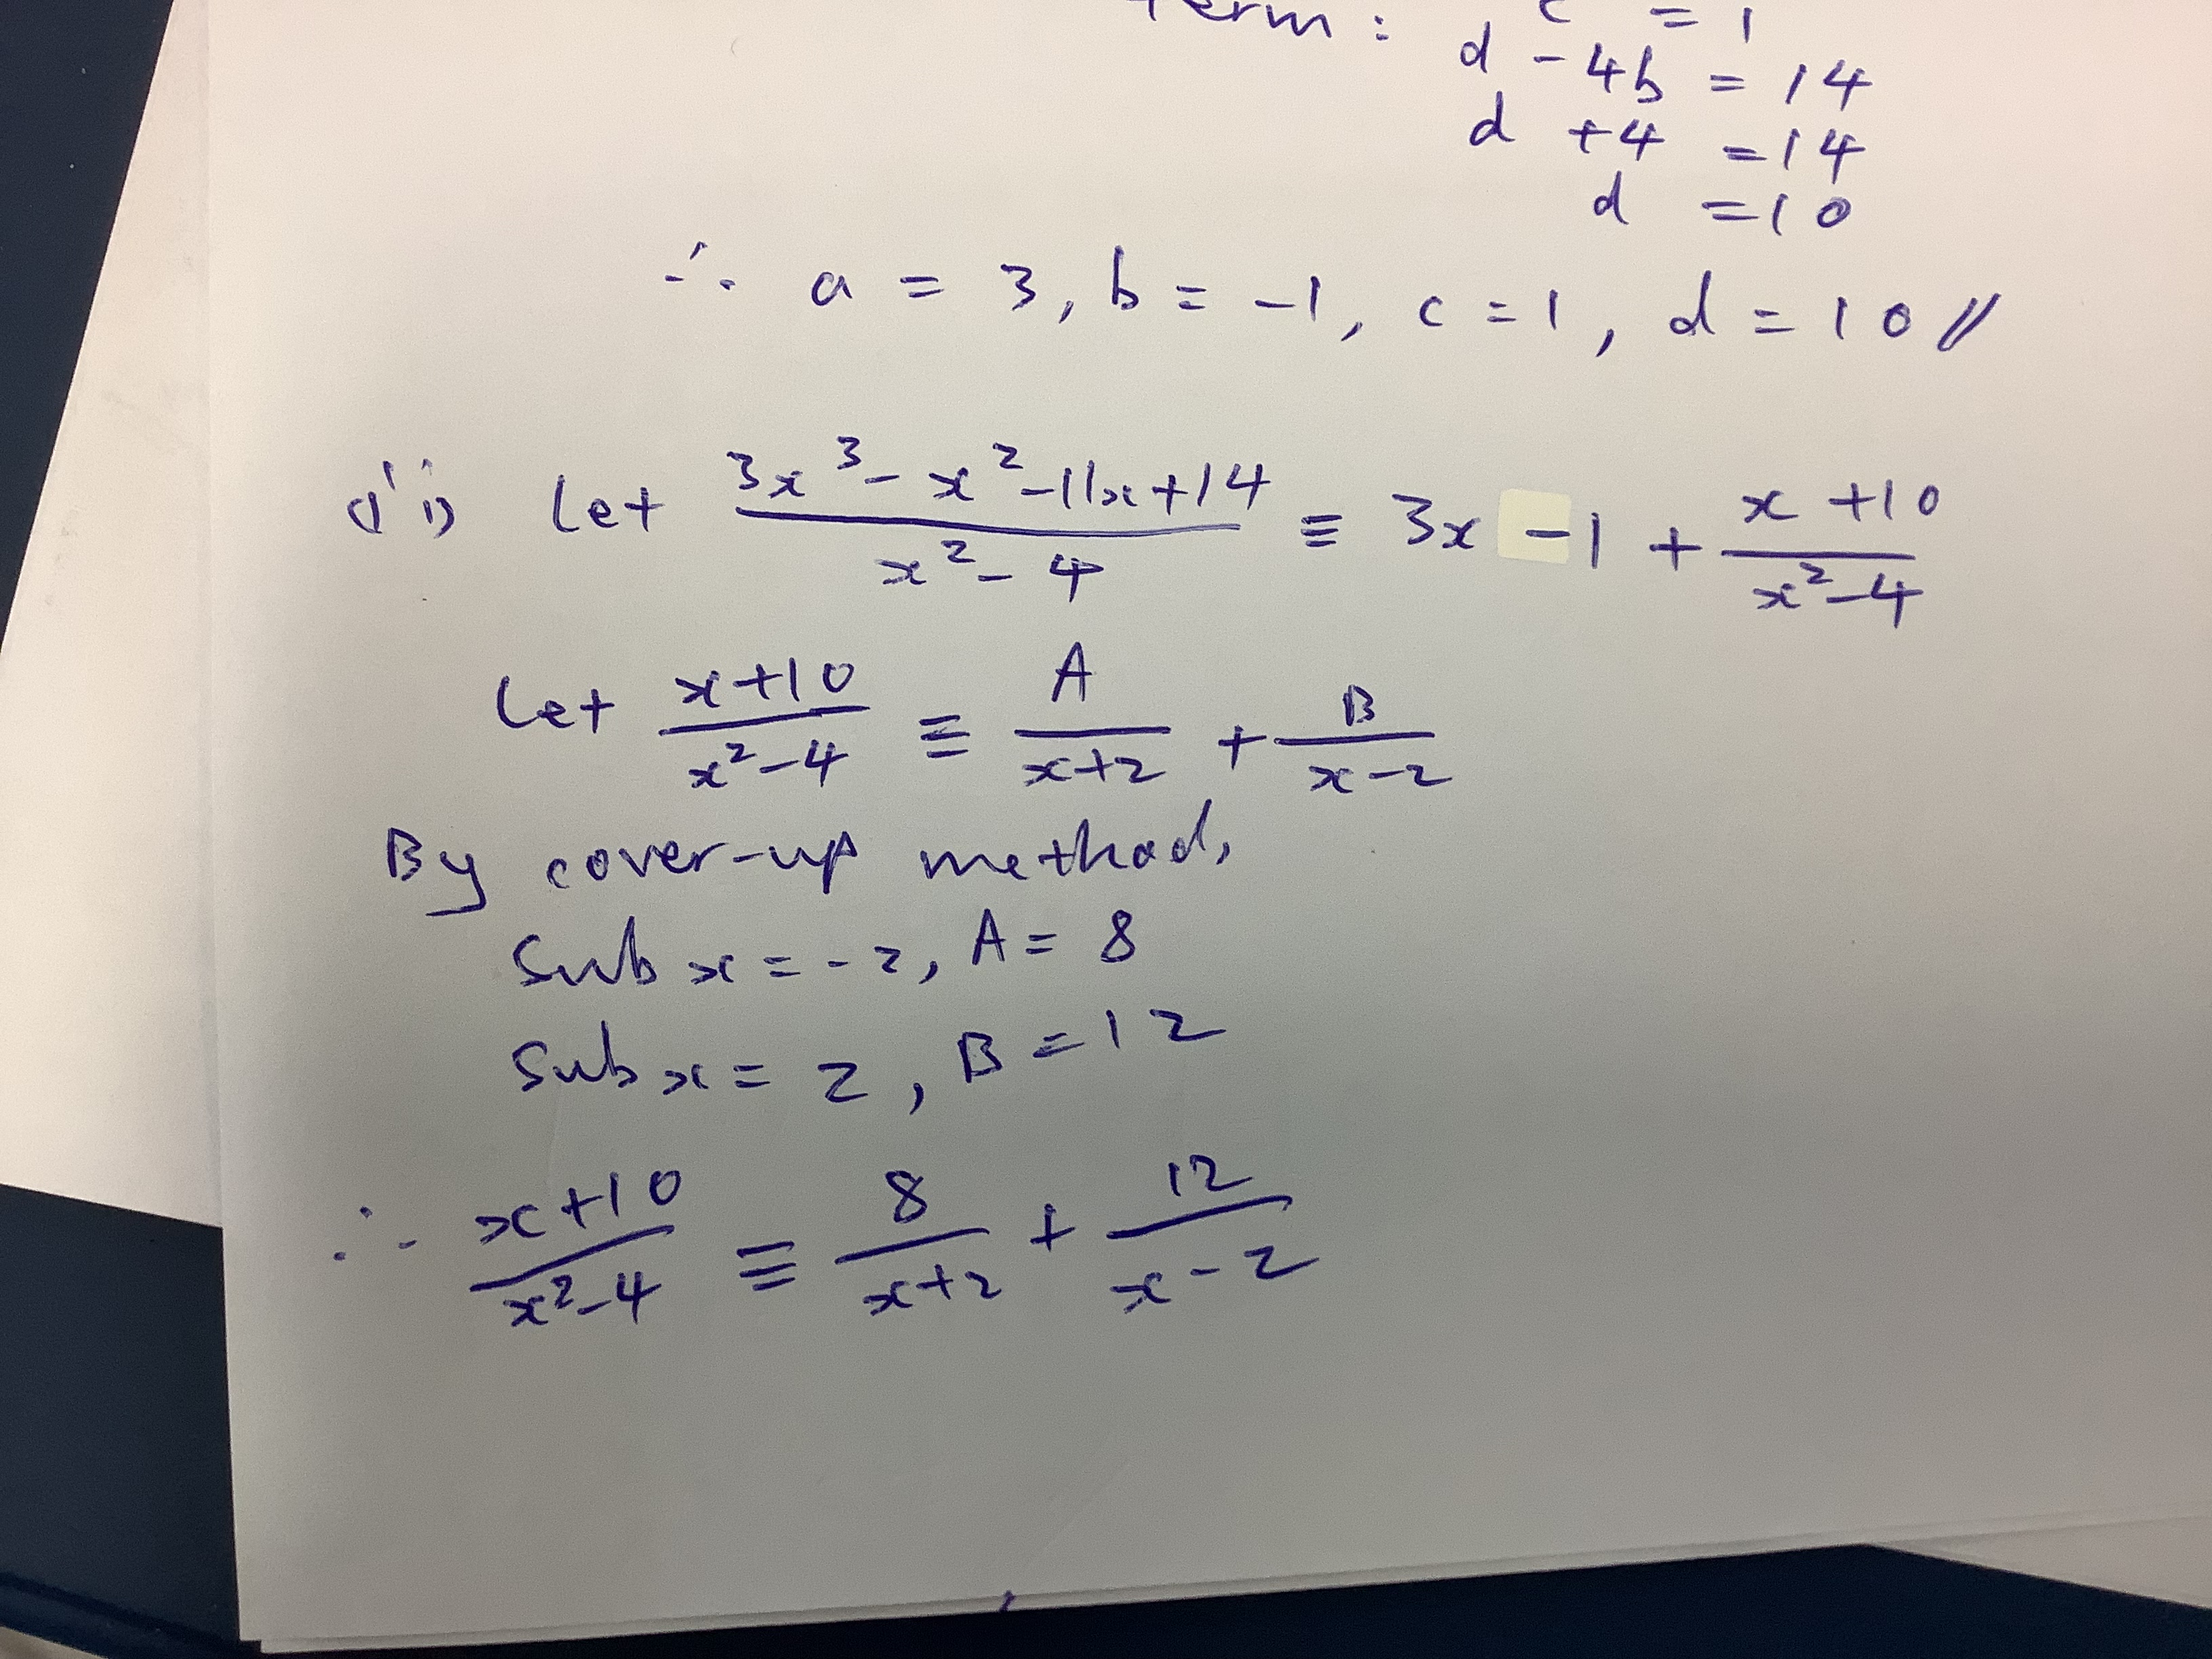 term : c = 1
d - 4b = 14
d + 4 = 14
d = 10
∴ a = 3, b = -1, c = 1, d = 10 //
(ii) Let (3x³ - x² - 11x + 14)/(x² - 4) ≡ 3x - 1 + (x + 10)/(x² - 4)
Let (x+10)/(x² - 4) ≡ A/(x+2) + B/(x-2)
By cover-up method,
Sub x = -2, A = 8
Sub x = 2, B = 12
∴ (x+10)/(x² - 4) ≡ 8/(x+2) + 12/(x-2)